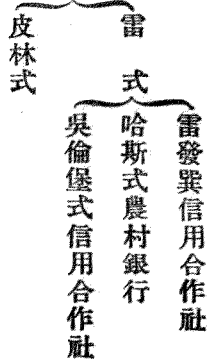 雷式
雷發巽信用合作社
哈斯式農村銀行
吳倫堡式信用合作社
皮林式